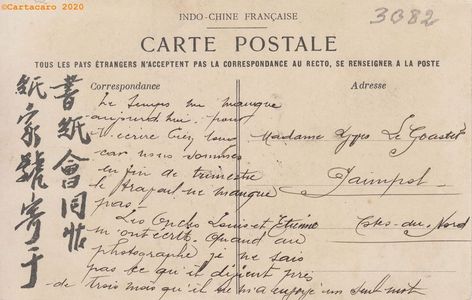 ©Cartacaro 2020
INDO-CHINE FRANÇAISE
3082
CARTE POSTALE
TOUS LES PAYS ÉTRANGERS N'ACCEPTENT PAS LA CORRESPONDANCE AU RECTO, SE RENSEIGNER A LA POSTE
Correspondance
Adresse
書紙會同帖
紙家號寄于
Le temps me manque
aujourd'hui pour
t'écrire
car nous sommes
en fin de trimestre
le travail ne manque
pas.
Les Oncles Louis et Etienne
m'ont écrit. Quand au
photographe je ne sais
pas ce qu'il devient près
de trois mois qu'il ne m'a envoyé un seul mot
Madame Yves Le Goaster
Paimpol
Côtes-du-Nord